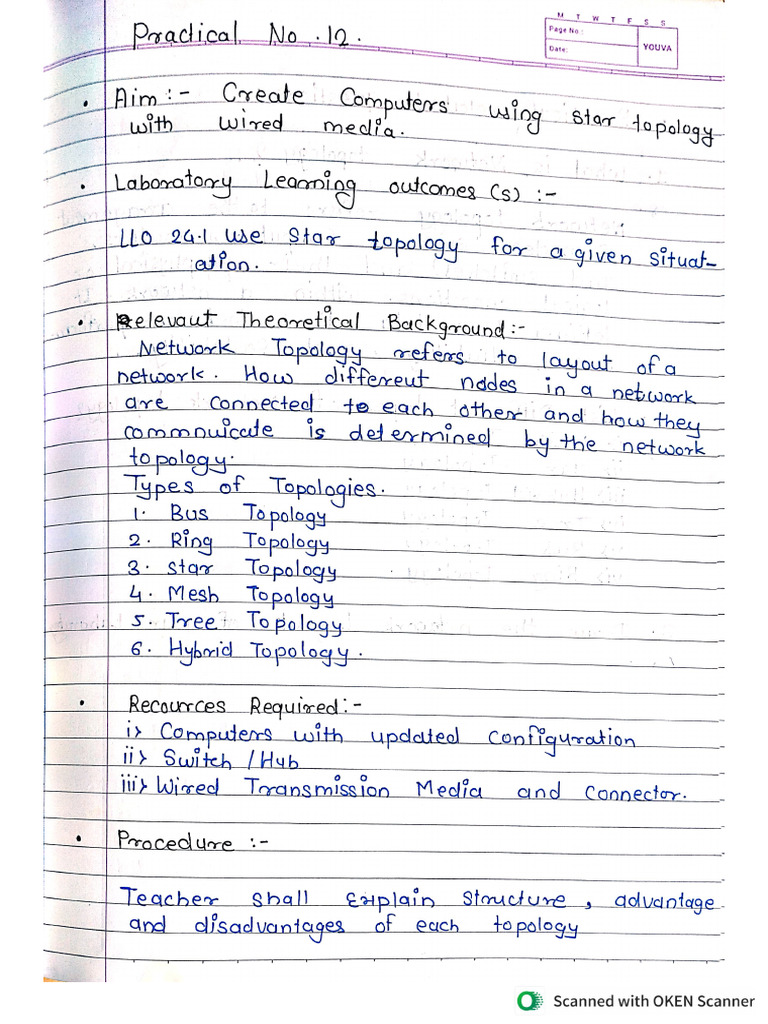 Practical No. 12.
M T W T F S S
Page No.:
Date:
YOUVA
• Aim :- Create Computers using star topology
with wired media.
• Laboratory Learning outcomes (s) :-
LLO 24.1 Use Star topology for a given Situat-
ation.
• Relevaut Theoretical Background :-
Network Topology refers to layout of a
network. How different nodes in a network
are connected to each other and how they
commnuicate is determined by the network
topology.
Types of Topologies.
1. Bus Topology
2. Ring Topology
3. Star Topology
4. Mesh Topology
5. Tree Topology
6. Hybrid Topology.
• Recources Required :-
i> Computers with updated configuration
ii> Switch / Hub
iii> Wired Transmission Media and Connector.
• Procedure :-
Teacher shall Explain structure, advantage
and disadvantages of each topology
Scanned with OKEN Scanner